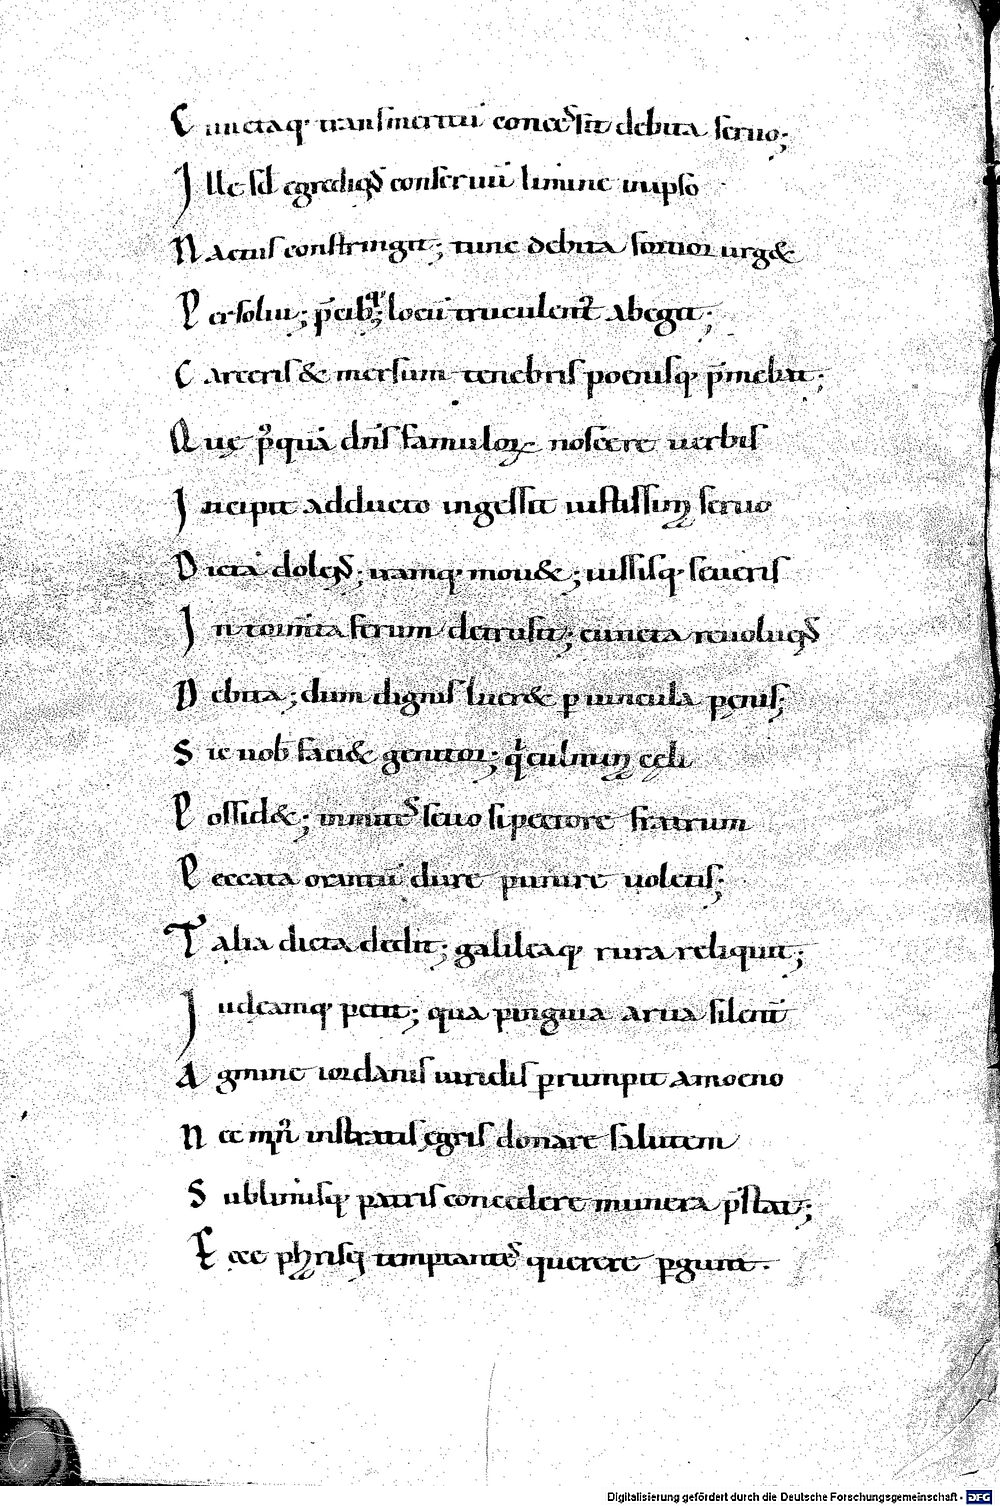 Cunctaq; transmeritũ concessit debita seruo;
Ille sed egrediens conseruũ limine in ipso
Nactus constringit; tunc debita fortior urg&
Persoluit; p̄cib; locũ truculent᷒ abegit;
Carceris & mersum tenebris poenisq; p̄mebat;
Quę p̄quã dñs famuloꝝ noscere uerbis
Incipit adducto ingessit iustissim᷒ seruo
Dicta dolens; iramq; mou&; iussisq; seueris
In tormta seruum detrusit; cuncta reuoluens
Debita; dum dignis luer& p uincula pęnis;
Sic uob faci& genitor; qi culmina cęli
Possid&; inmites seuo si pectore fratrum
Peccata orantũ dure punire uoletis;
Talia dicta dedit; galileaq; rura reliquit;
Iudeamq; petit; qua pinguia arua silent
Agmine iordanis uiridis prumpit amoeno
Nec mr̄i instratis ęgris donare salutem
Sublimisq; patris concedere munera p̄stat;
Ecce pharisęi temptantes querere pgunt.
Digitalisierung gefördert durch die Deutsche Forschungsgemeinschaft - DFG